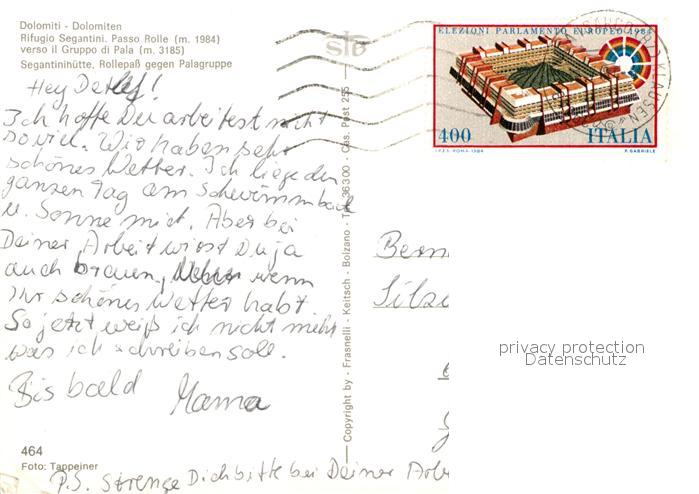 Dolomiti - Dolomiten
Rifugio Segantini. Passo Rolle (m. 1984)
verso il Gruppo di Pala (m. 3185)
Segantinihütte, Rollepaß gegen Palagruppe
Hey Detlef!
Ich hoffe Du arbeitest nicht
so viel. Wir haben sehr
schönes Wetter. Ich liege den
ganzen Tag am Schwimmbad
u. Sonne mich. Aber bei
Deiner Arbeit wirst Du ja
auch braun, wenn
Ihr schönes Wetter habt.
So jetzt weiß ich nicht mehr
was ich schreiben soll.
Bis bald Mama
464
Foto: Tappeiner
P.S. Strenge Dich bitte bei Deiner Arbe
Copyright by - Frasnelli - Keitsch - Bolzano - Tel. 36300 - Ges. gesch. 255
ELEZIONI PARLAMENTO EUROPEO 1984
400 ITALIA
I.P.Z.S. ROMA - 1984 P. GABRIELE
KLAUSEN
Bern
Silz
privacy protection
Datenschutz